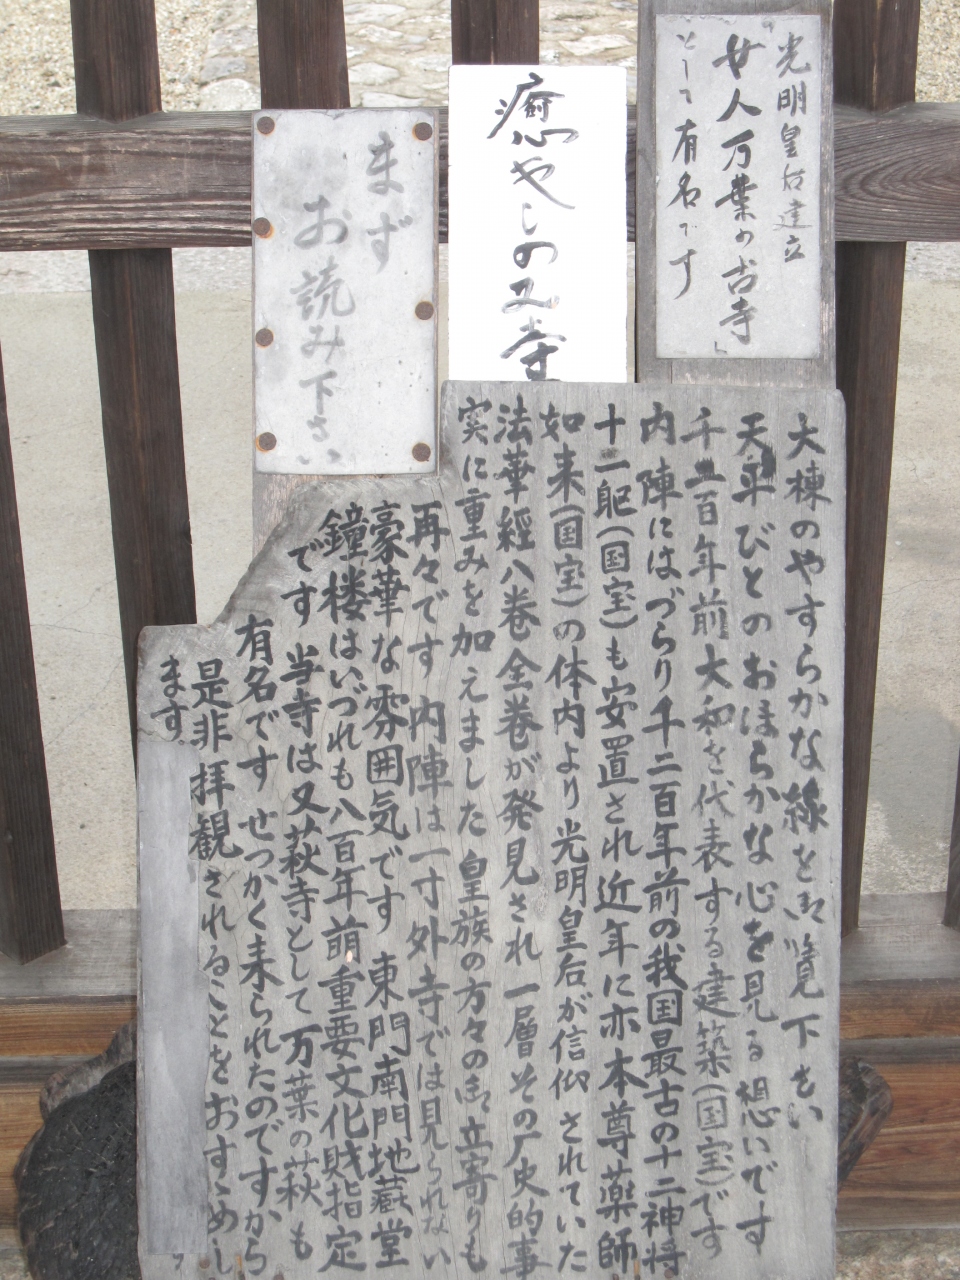 光明皇后建立
『女人万葉の古寺』
として有名です
癒やしの又寺
まず
お読み下さい
大棟のやすらかな線を御覧下さい
天平びとのおほらかな心を見る想いです
千二百年前大和を代表する建築(国宝)です
内陣にはづらり千二百年前の我国最古の十二神将
十一躯(国宝)も安置され近年に亦本尊薬師
如来(国宝)の体内より光明皇后が信仰されていた
法華經八巻全巻が発見され一層その歴史的事
実に重みを加えました皇族の方々の御立寄りも
再々です内陣は一寸外寺では見られない
豪華な雰囲気です東門南門地蔵堂
鐘楼はいづれも八百年前重要文化財指定
です当寺は又萩寺として万葉の萩も
有名ですせつかく来られたのですから
是非拝観されることをおすゝめし
ます